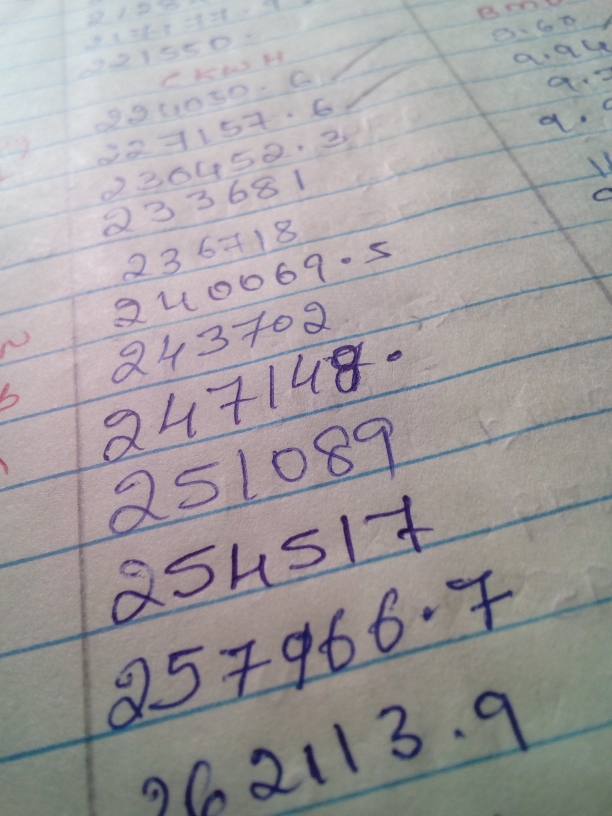 221550.
CKWH
224030.6
227157.6
230452.3
233681
236718
240069.5
243702
247148.
251089
254517
257966.7
262113.9